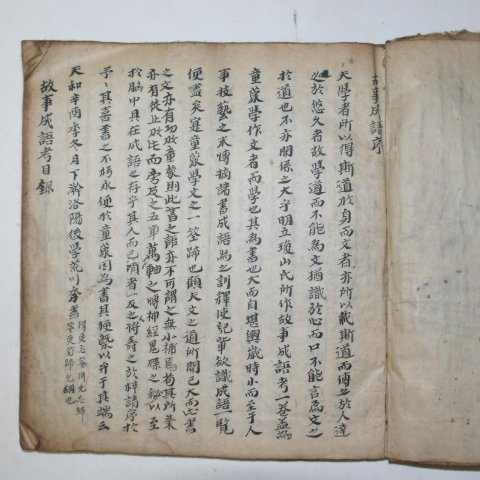 故事成語序
夫學者所以得斯道於身而文者亦所以載斯道而傳之於人達
之於悠久者故學道而不能為文猶識於心而口不能言為文之
於道也不亦關係之大乎明丘瓊山氏所作故事成語考一卷蓋為
童蒙學作文者而學也其為書也大而自堪輿歲時小而至于人
事技藝之末博摘諸書成語為之訓釋使兒輩欲識成語一覧
便盡矣寔童蒙學文之一筌蹄也顧夫文之道所關已大而此書
之文亦有功於童蒙則此書之諸亦不可謂之無小補焉苟其所業
亦有從止於此而廣及之五車萬軸之博神經思牒之秘以至
於腦中具在成語之存乎其人而已頃者之將壽之於梓請序於
予其嘉書之不朽永便於童蒙因為書其梗概以弁于其端云
天和辛酉季冬月下澣洛陽後學荒川秀
得兎忘筌得魚忘
故事成語考目錄